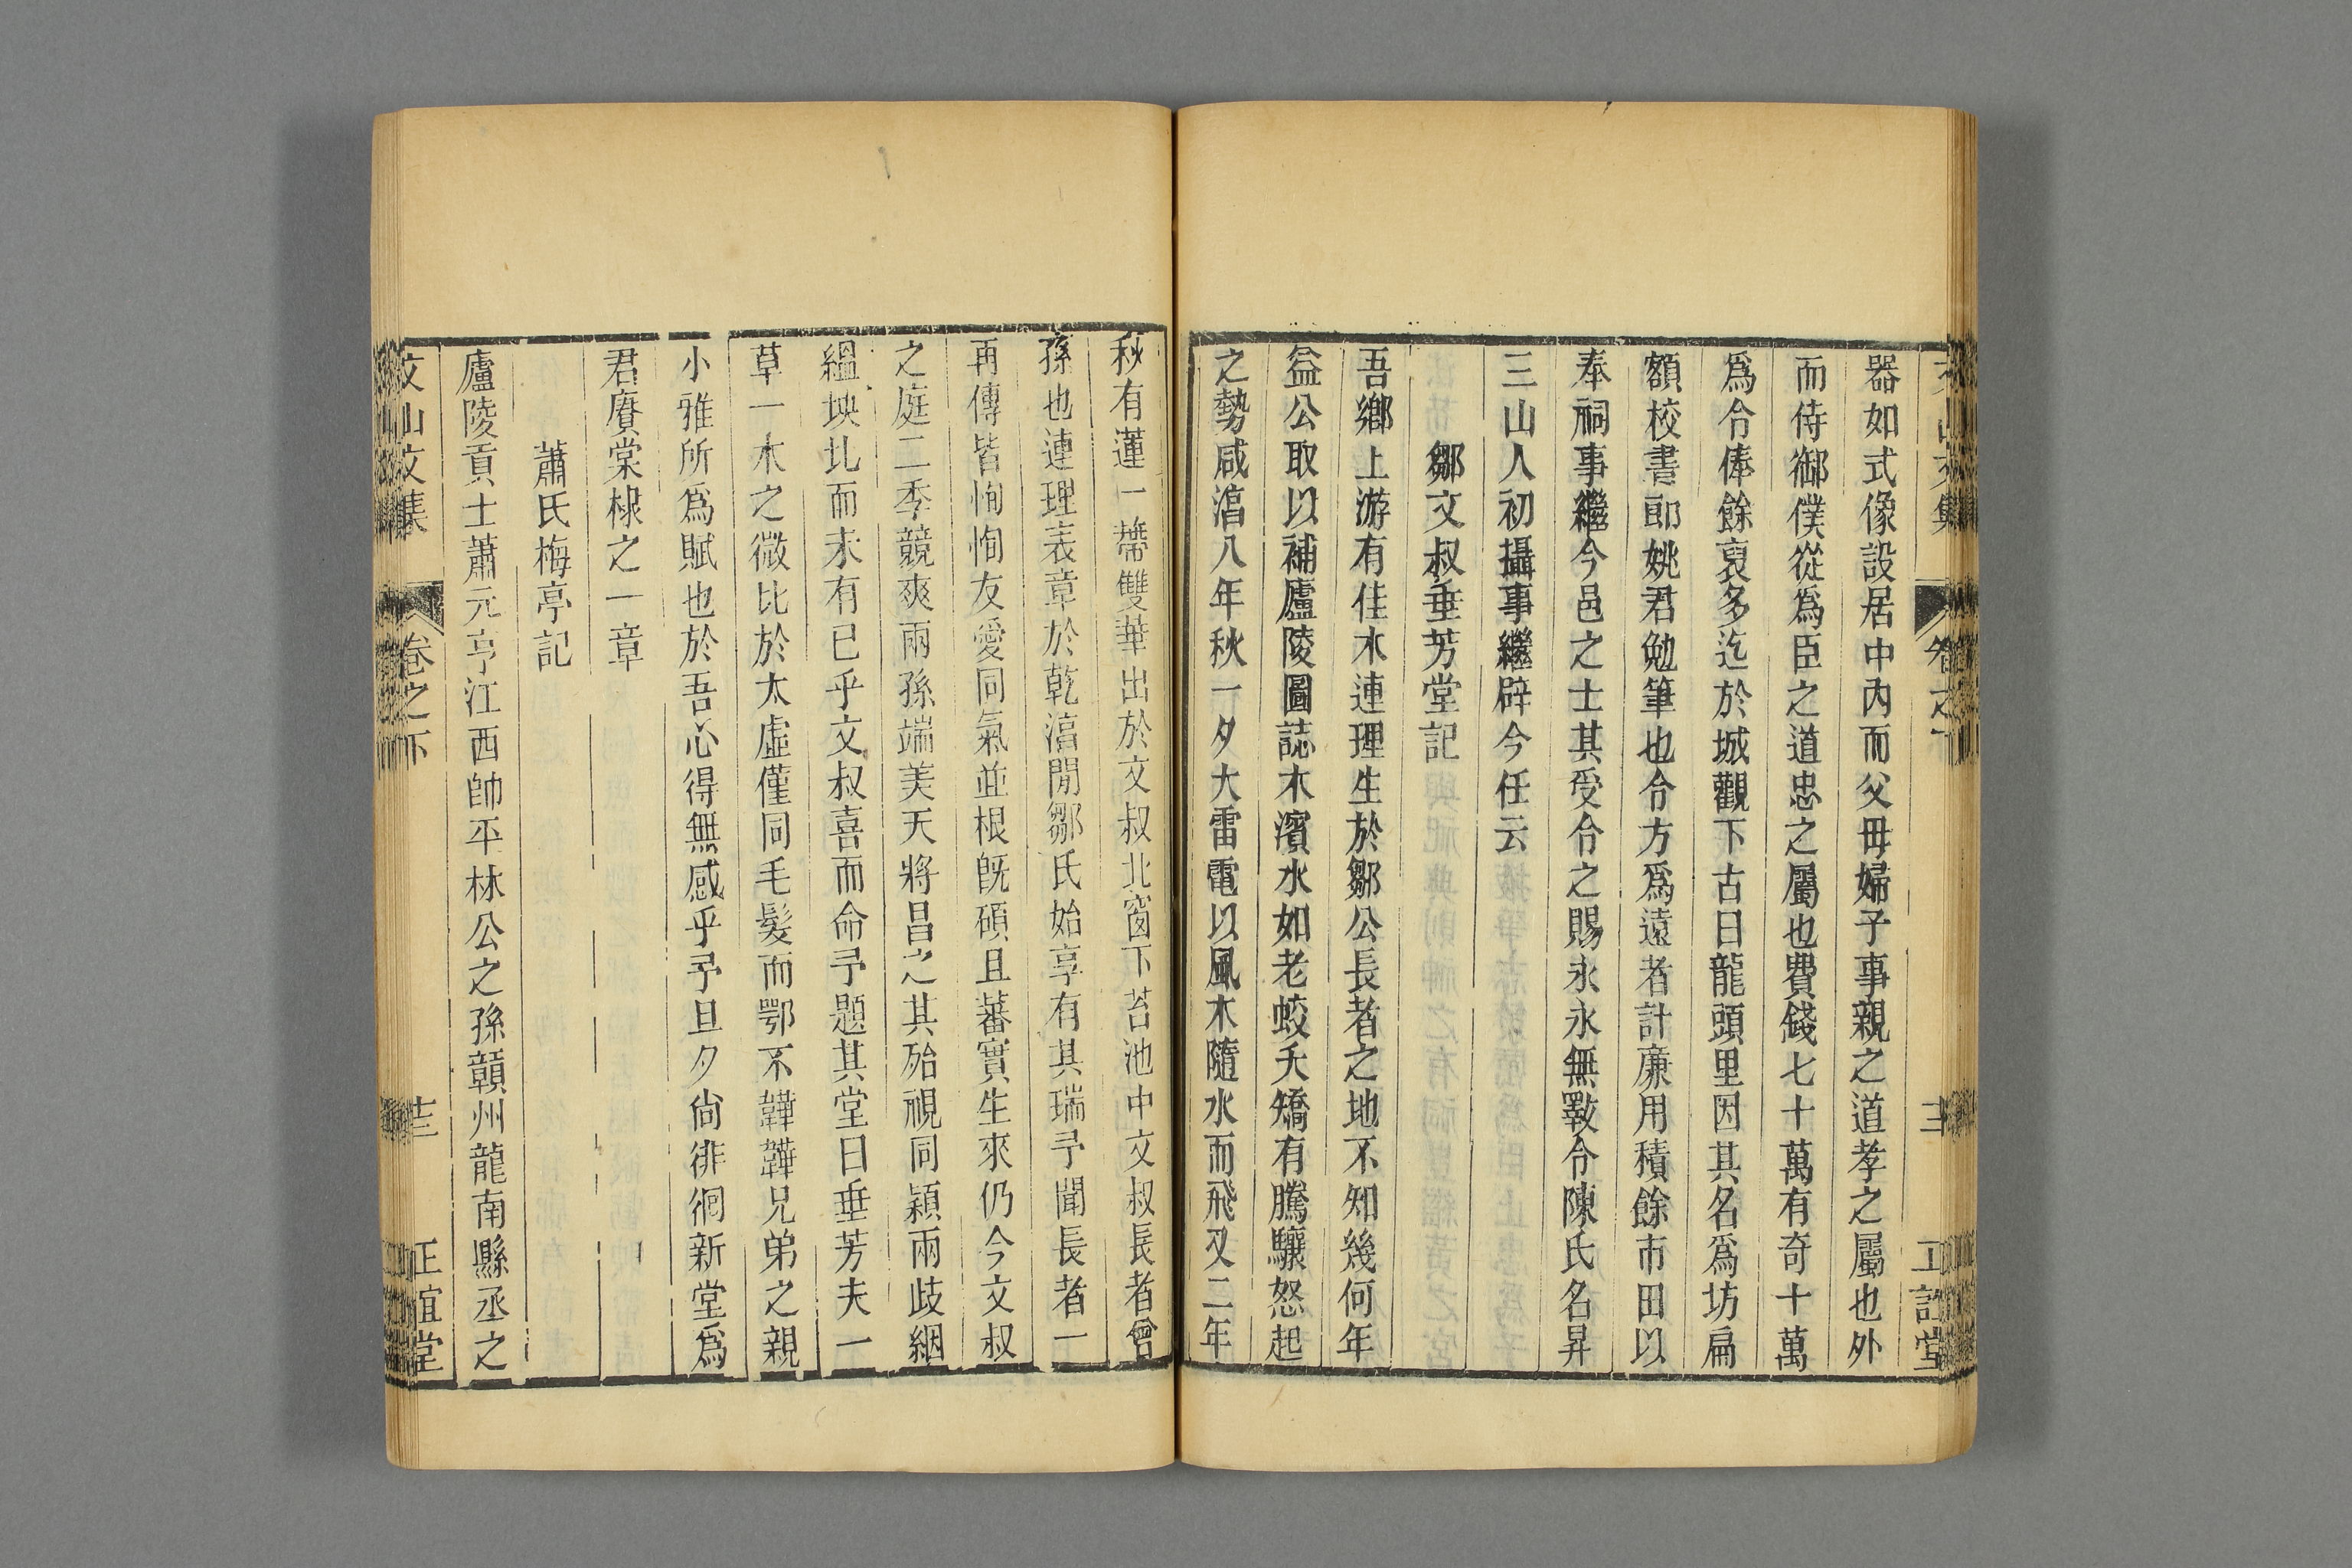 器如式像設居中内而父毋婦子事親之道孝之屬也外
而侍御僕從爲臣之道忠之屬也費錢七十萬有奇十萬
爲令俸餘裒多迄於城觀下古曰龍頭里因其名爲坊扁
額校書郎姚君勉筆也令方爲遠者計廉用積餘市田以
奉祠事繼今邑之士其受令之賜永永無斁令陳氏名昇
三山人初攝事繼辟今任云
鄒文叔垂芳堂記
吾鄉上游有佳木連理生於鄒公長者之地不知幾何年
益公取以補廬陵圖誌木濱水如老蛟夭矯有騰驤怒起
之勢咸淳八年秋一夕大雷電以風木隨水而飛又二年
秋有蓮一蔕雙華出於文叔北窗下苔池中文叔長者曾
孫也連理表章於乾淳間鄒氏始享有其瑞予聞長者一
再傳皆恂恂友愛同氣並根旣碩且蕃實生來仍今文叔
之庭二季競爽兩孫端美天將昌之其殆視同穎兩歧絪
縕坱圠而未有已乎文叔喜而命予題其堂曰垂芳夫一
草一木之微比於太虛僅同毛髮而鄂不韡韡兄弟之親
小雅所爲賦也於吾心得無感乎予旦夕尙徘徊新堂爲
君賡棠棣之一章
蕭氏梅亭記
廬陵貢士蕭元亨江西帥平林公之孫贛州龍南縣丞之
文山文集
卷之下
正誼堂